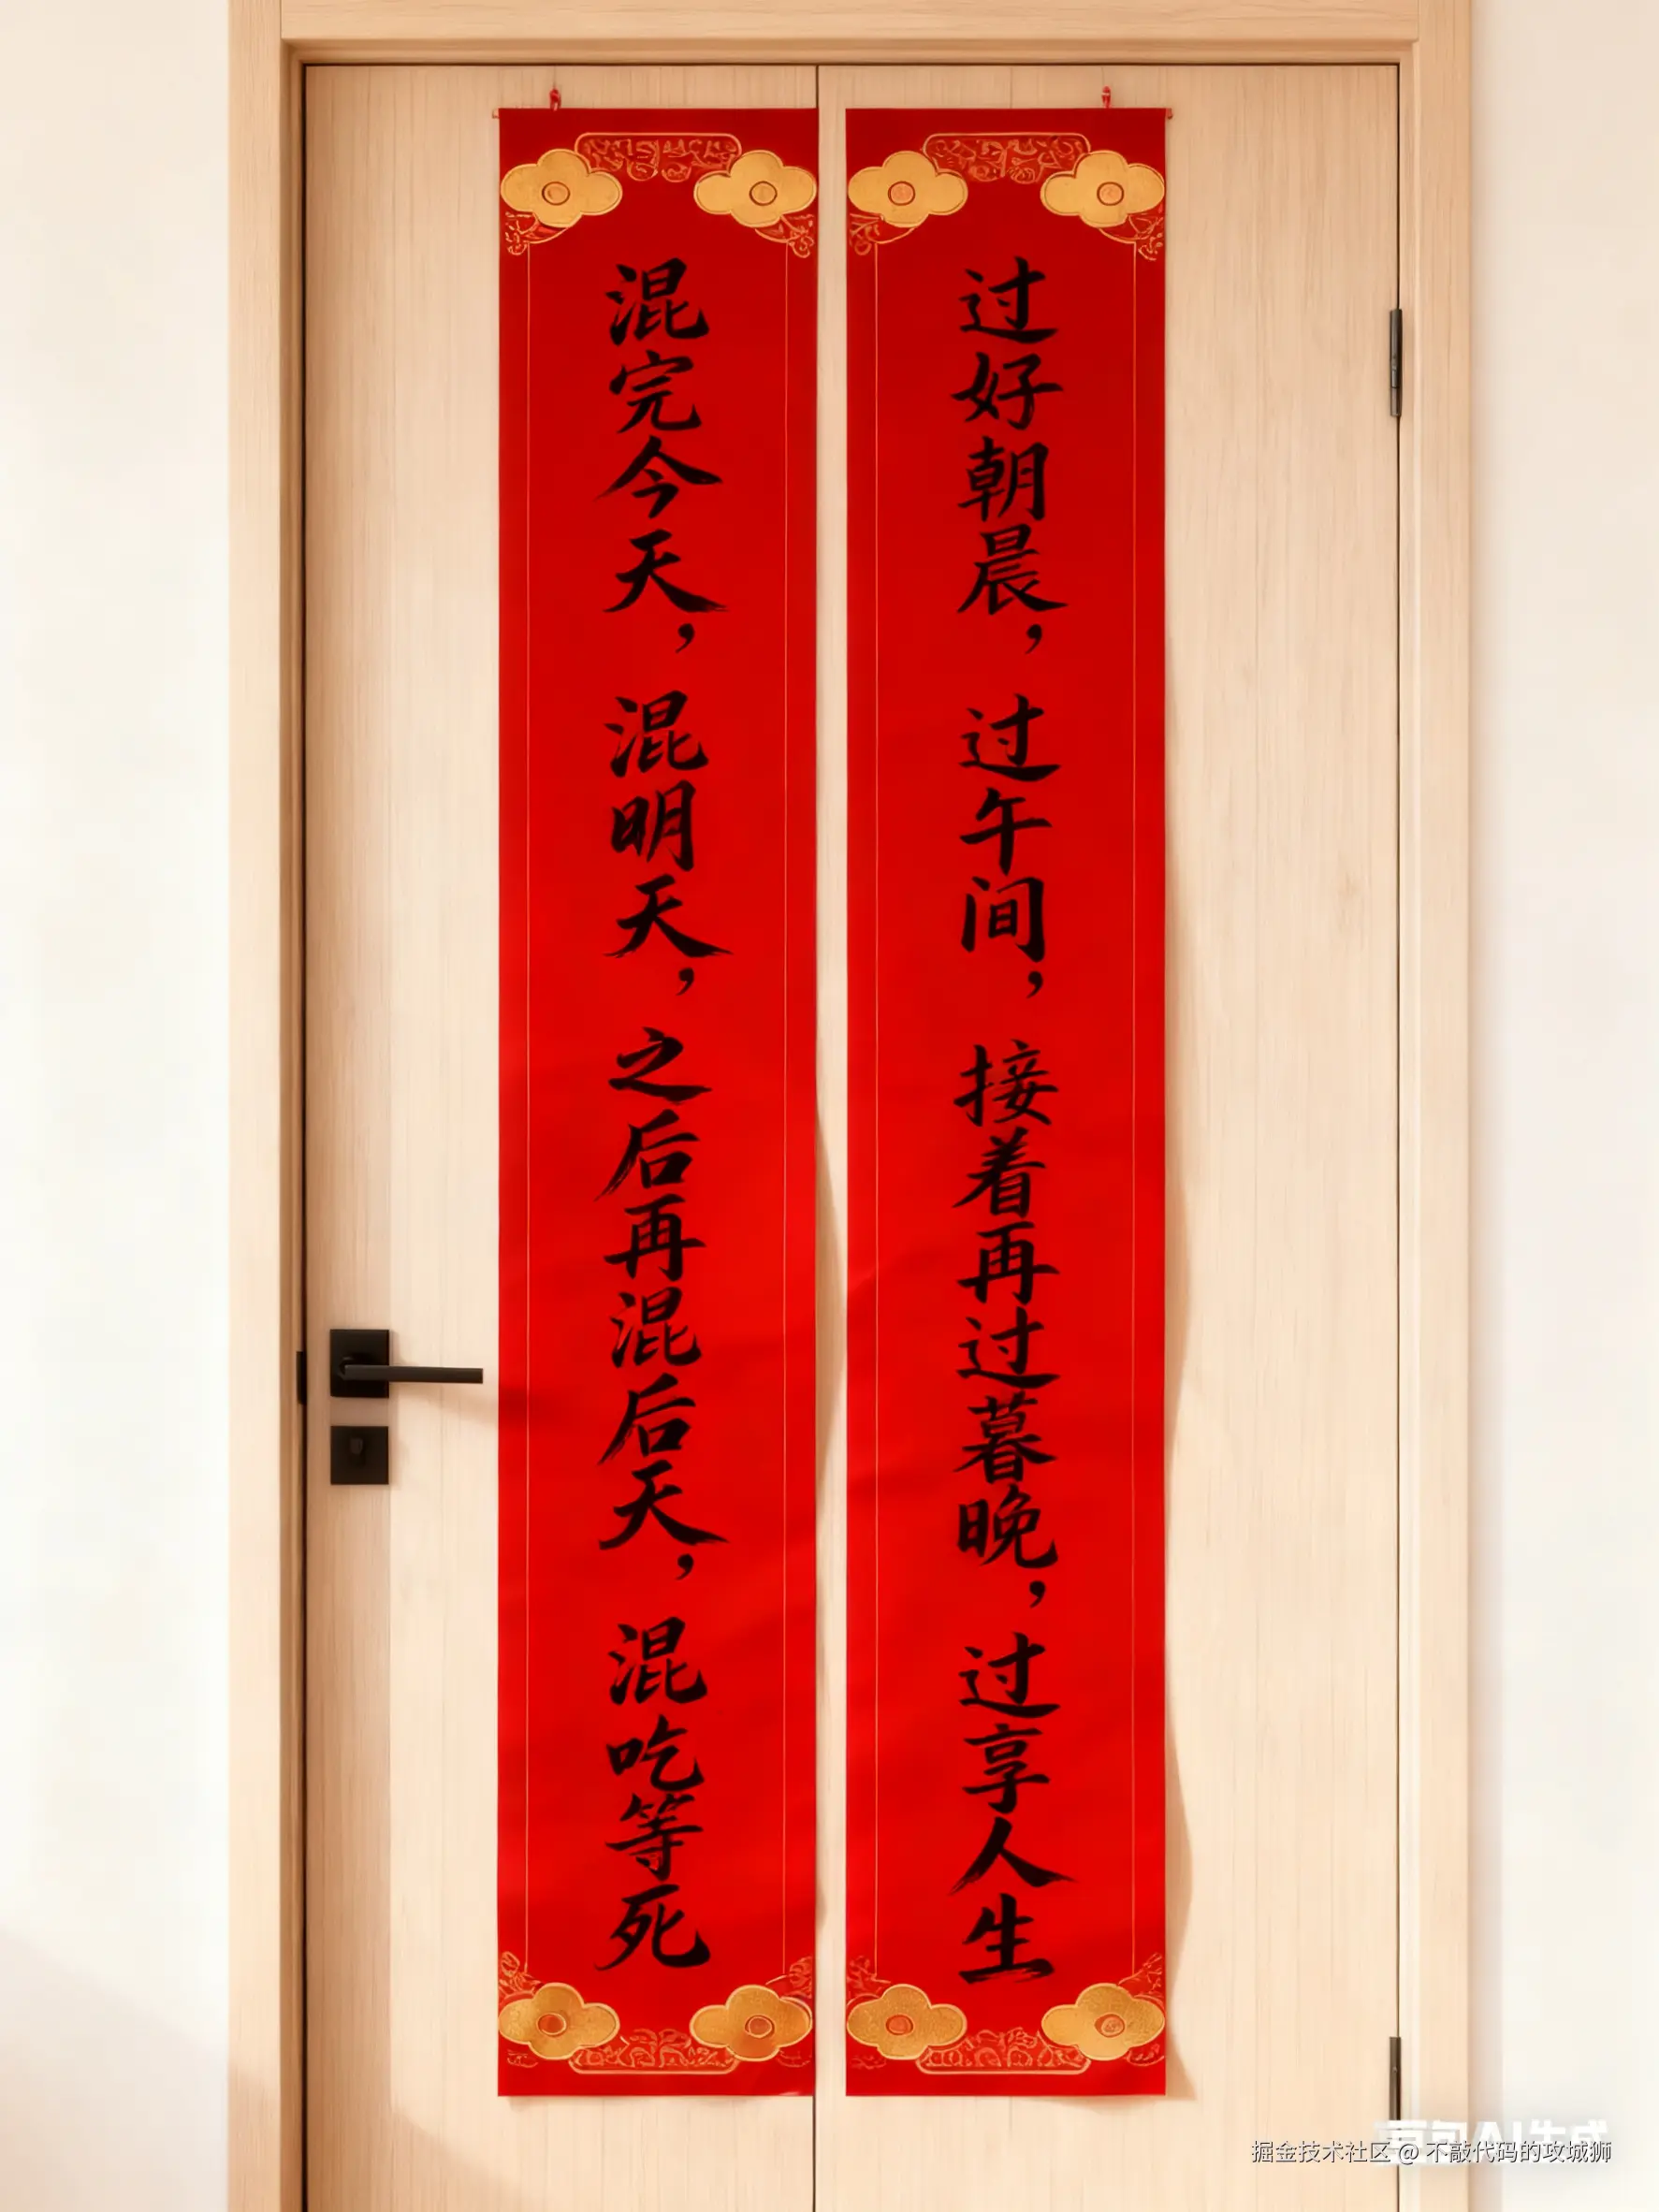 过好朝晨，过午间，接着再过暮晚，过享人生
混完今天，混明天，之后再混后天，混吃等死
豆包AI生成
掘金技术社区 @ 不敲代码的攻城狮